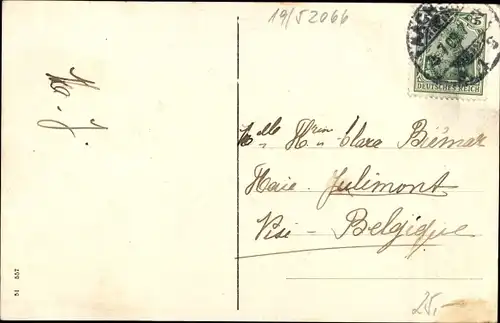 19/52066
5
DEUTSCHES REICH
Mlle Hrin Clara Biémar
Haie. Julimont
Visé - Belgique
51 557
25.-